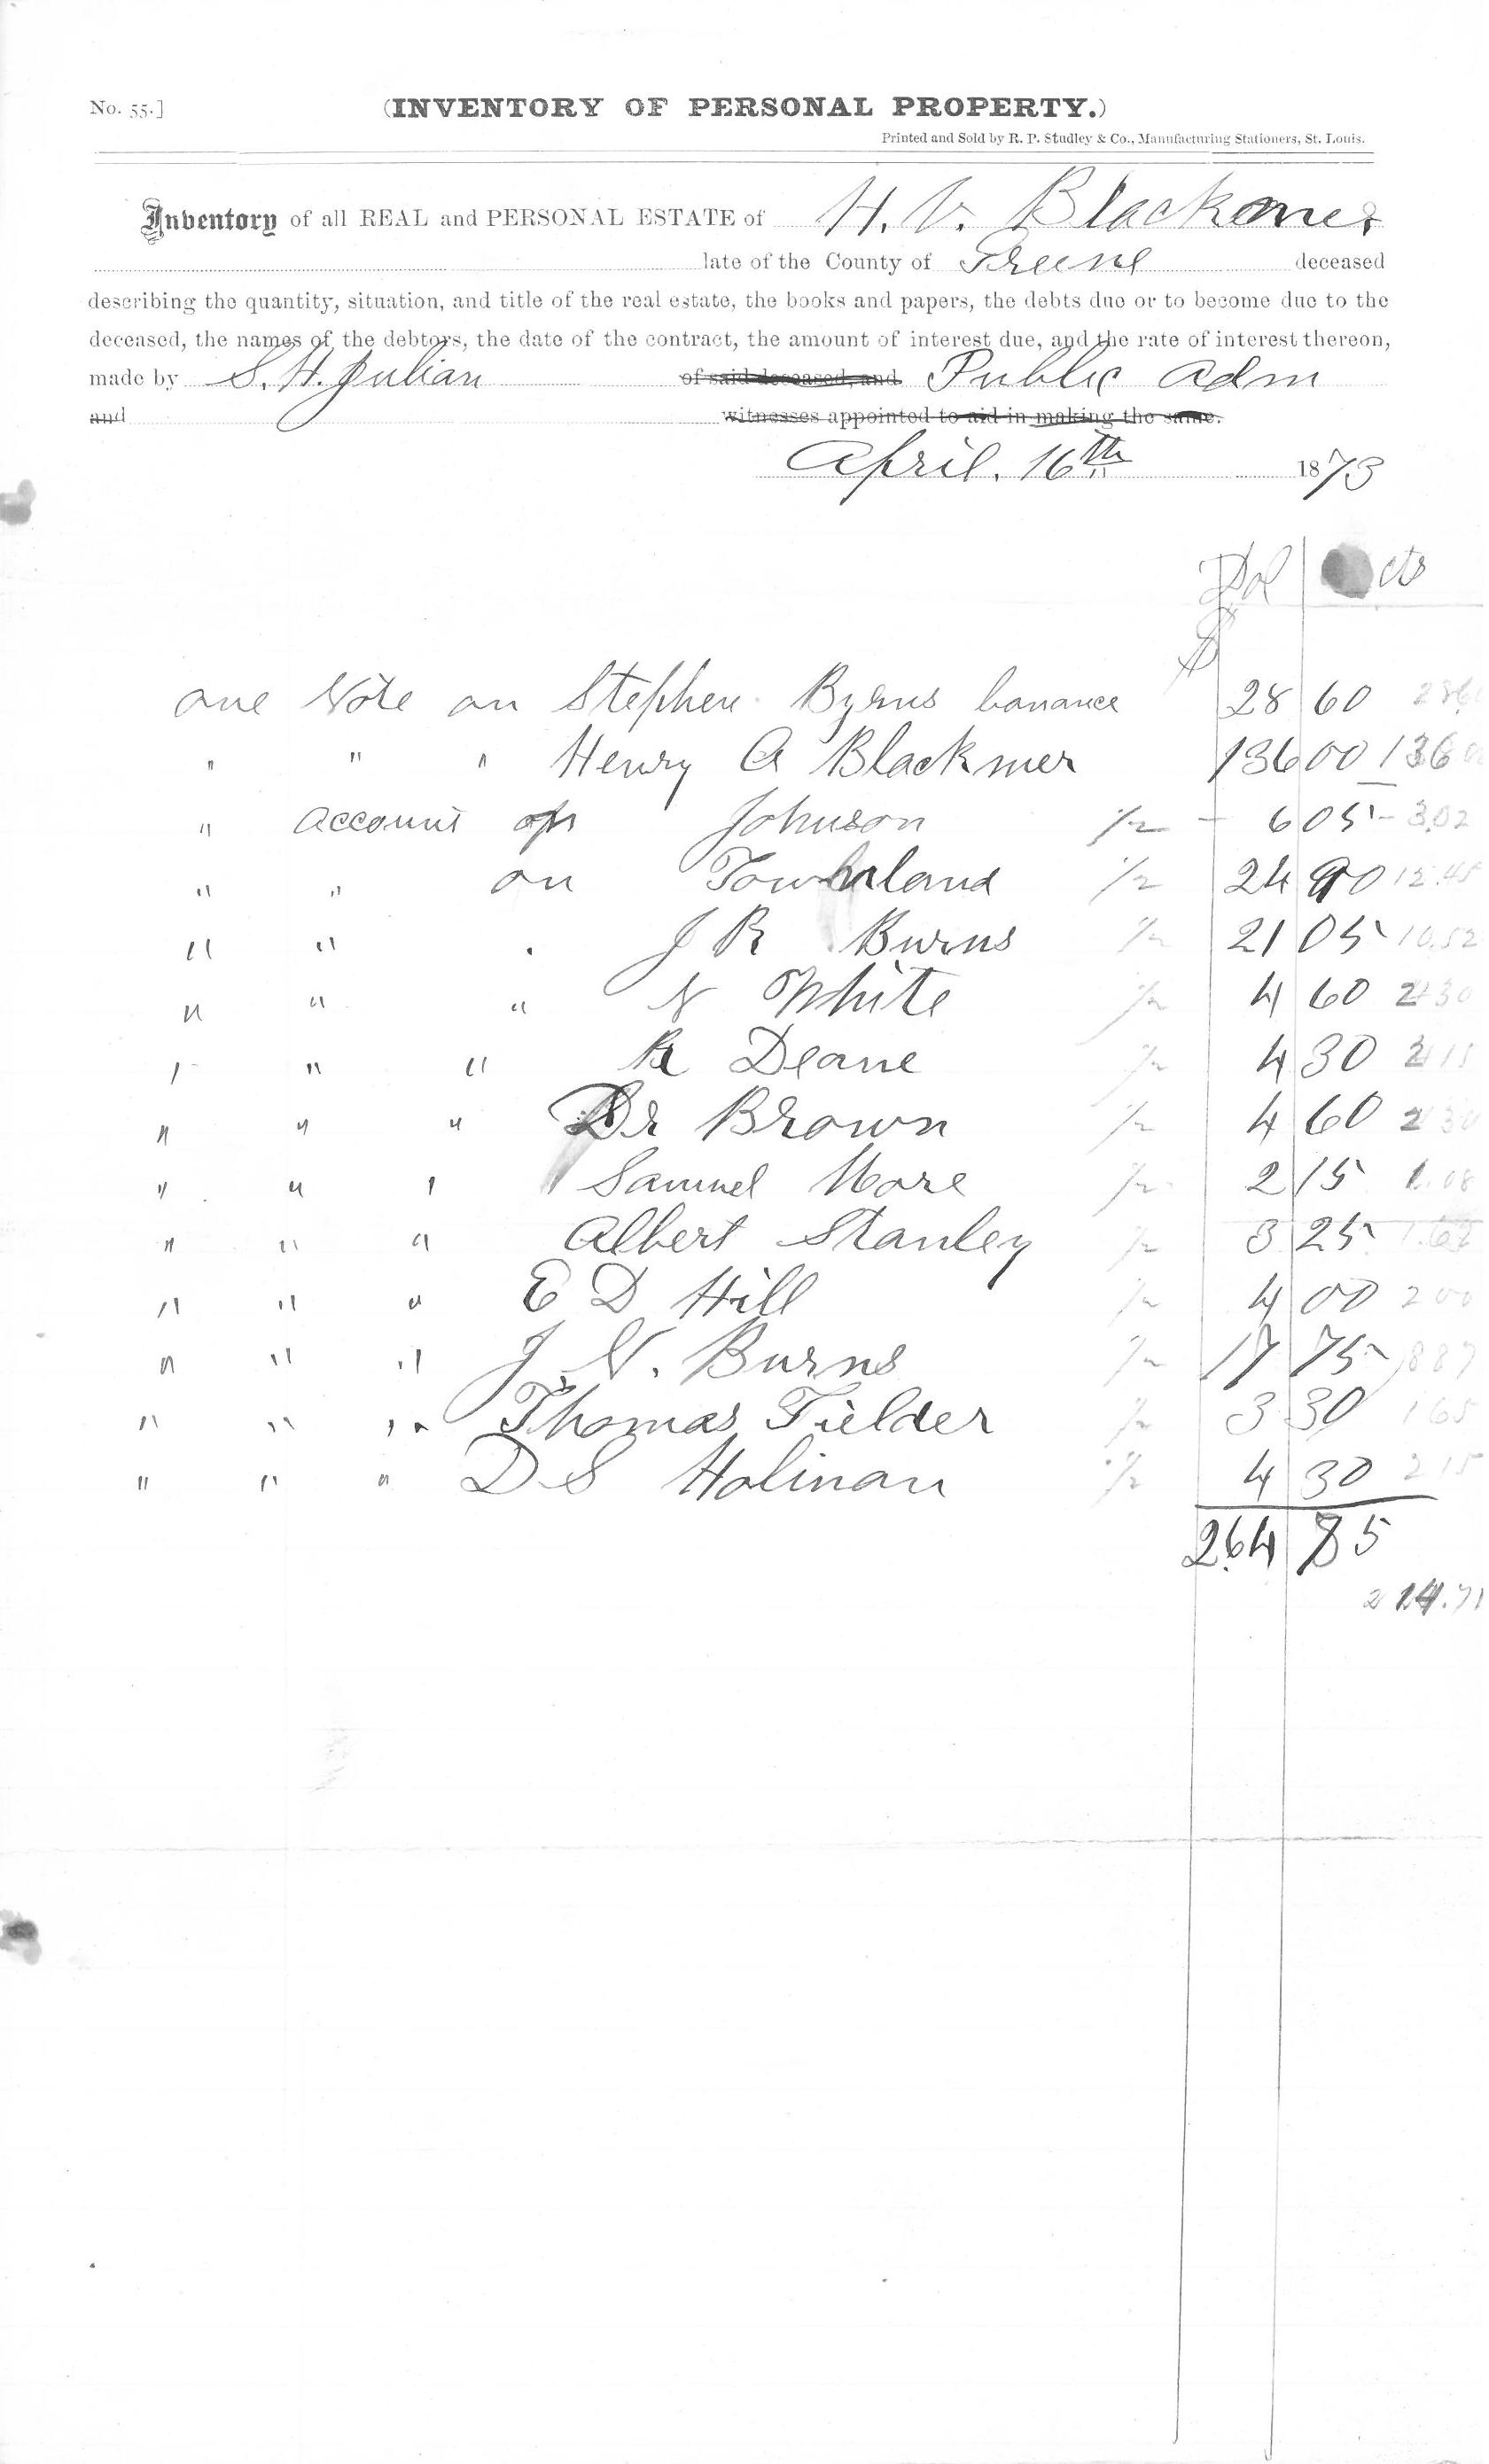 No. 55.]
(INVENTORY OF PERSONAL PROPERTY.)
Printed and Sold by R. P. Studley & Co., Manufacturing Stationers, St. Louis.
Inventory of all REAL and PERSONAL ESTATE of H. V. Blackmer
late of the County of Greene deceased
describing the quantity, situation, and title of the real estate, the books and papers, the debts due or to become due to the
deceased, the names of the debtors, the date of the contract, the amount of interest due, and the rate of interest thereon,
made by S. H. Julian of said deceased, and Public Adm
and witnesses appointed to aid in making the same.
April. 16th 1873
Dol cts
$
one Note on Stephen Byrns 28 60 28.60
" " " Henry A Blackmer 136 00 136 00
" account on Johnson 1/2 - 6 05 - 3.02
" " on 1/2 24 90 12.45
" " . J R Burns 1/2 21 05 10.52
" " " N White 1/2 4 60 2 30
" " " R Deane 1/2 4 30 2 15
" " " Dr Brown 1/2 4 60 2 30
" " " Samuel More 1/2 2 15 1.08
" " " Albert Stanley 1/2 3 25 1.62
" " " E D Hill 1/2 4 00 2 00
" " " J. N. Burns 1/2 17 75 8 87
" " " Thomas Fielder 1/2 3 30 1 65
" " " D S Holman 1/2 4 30 2 15
264 85
214.71